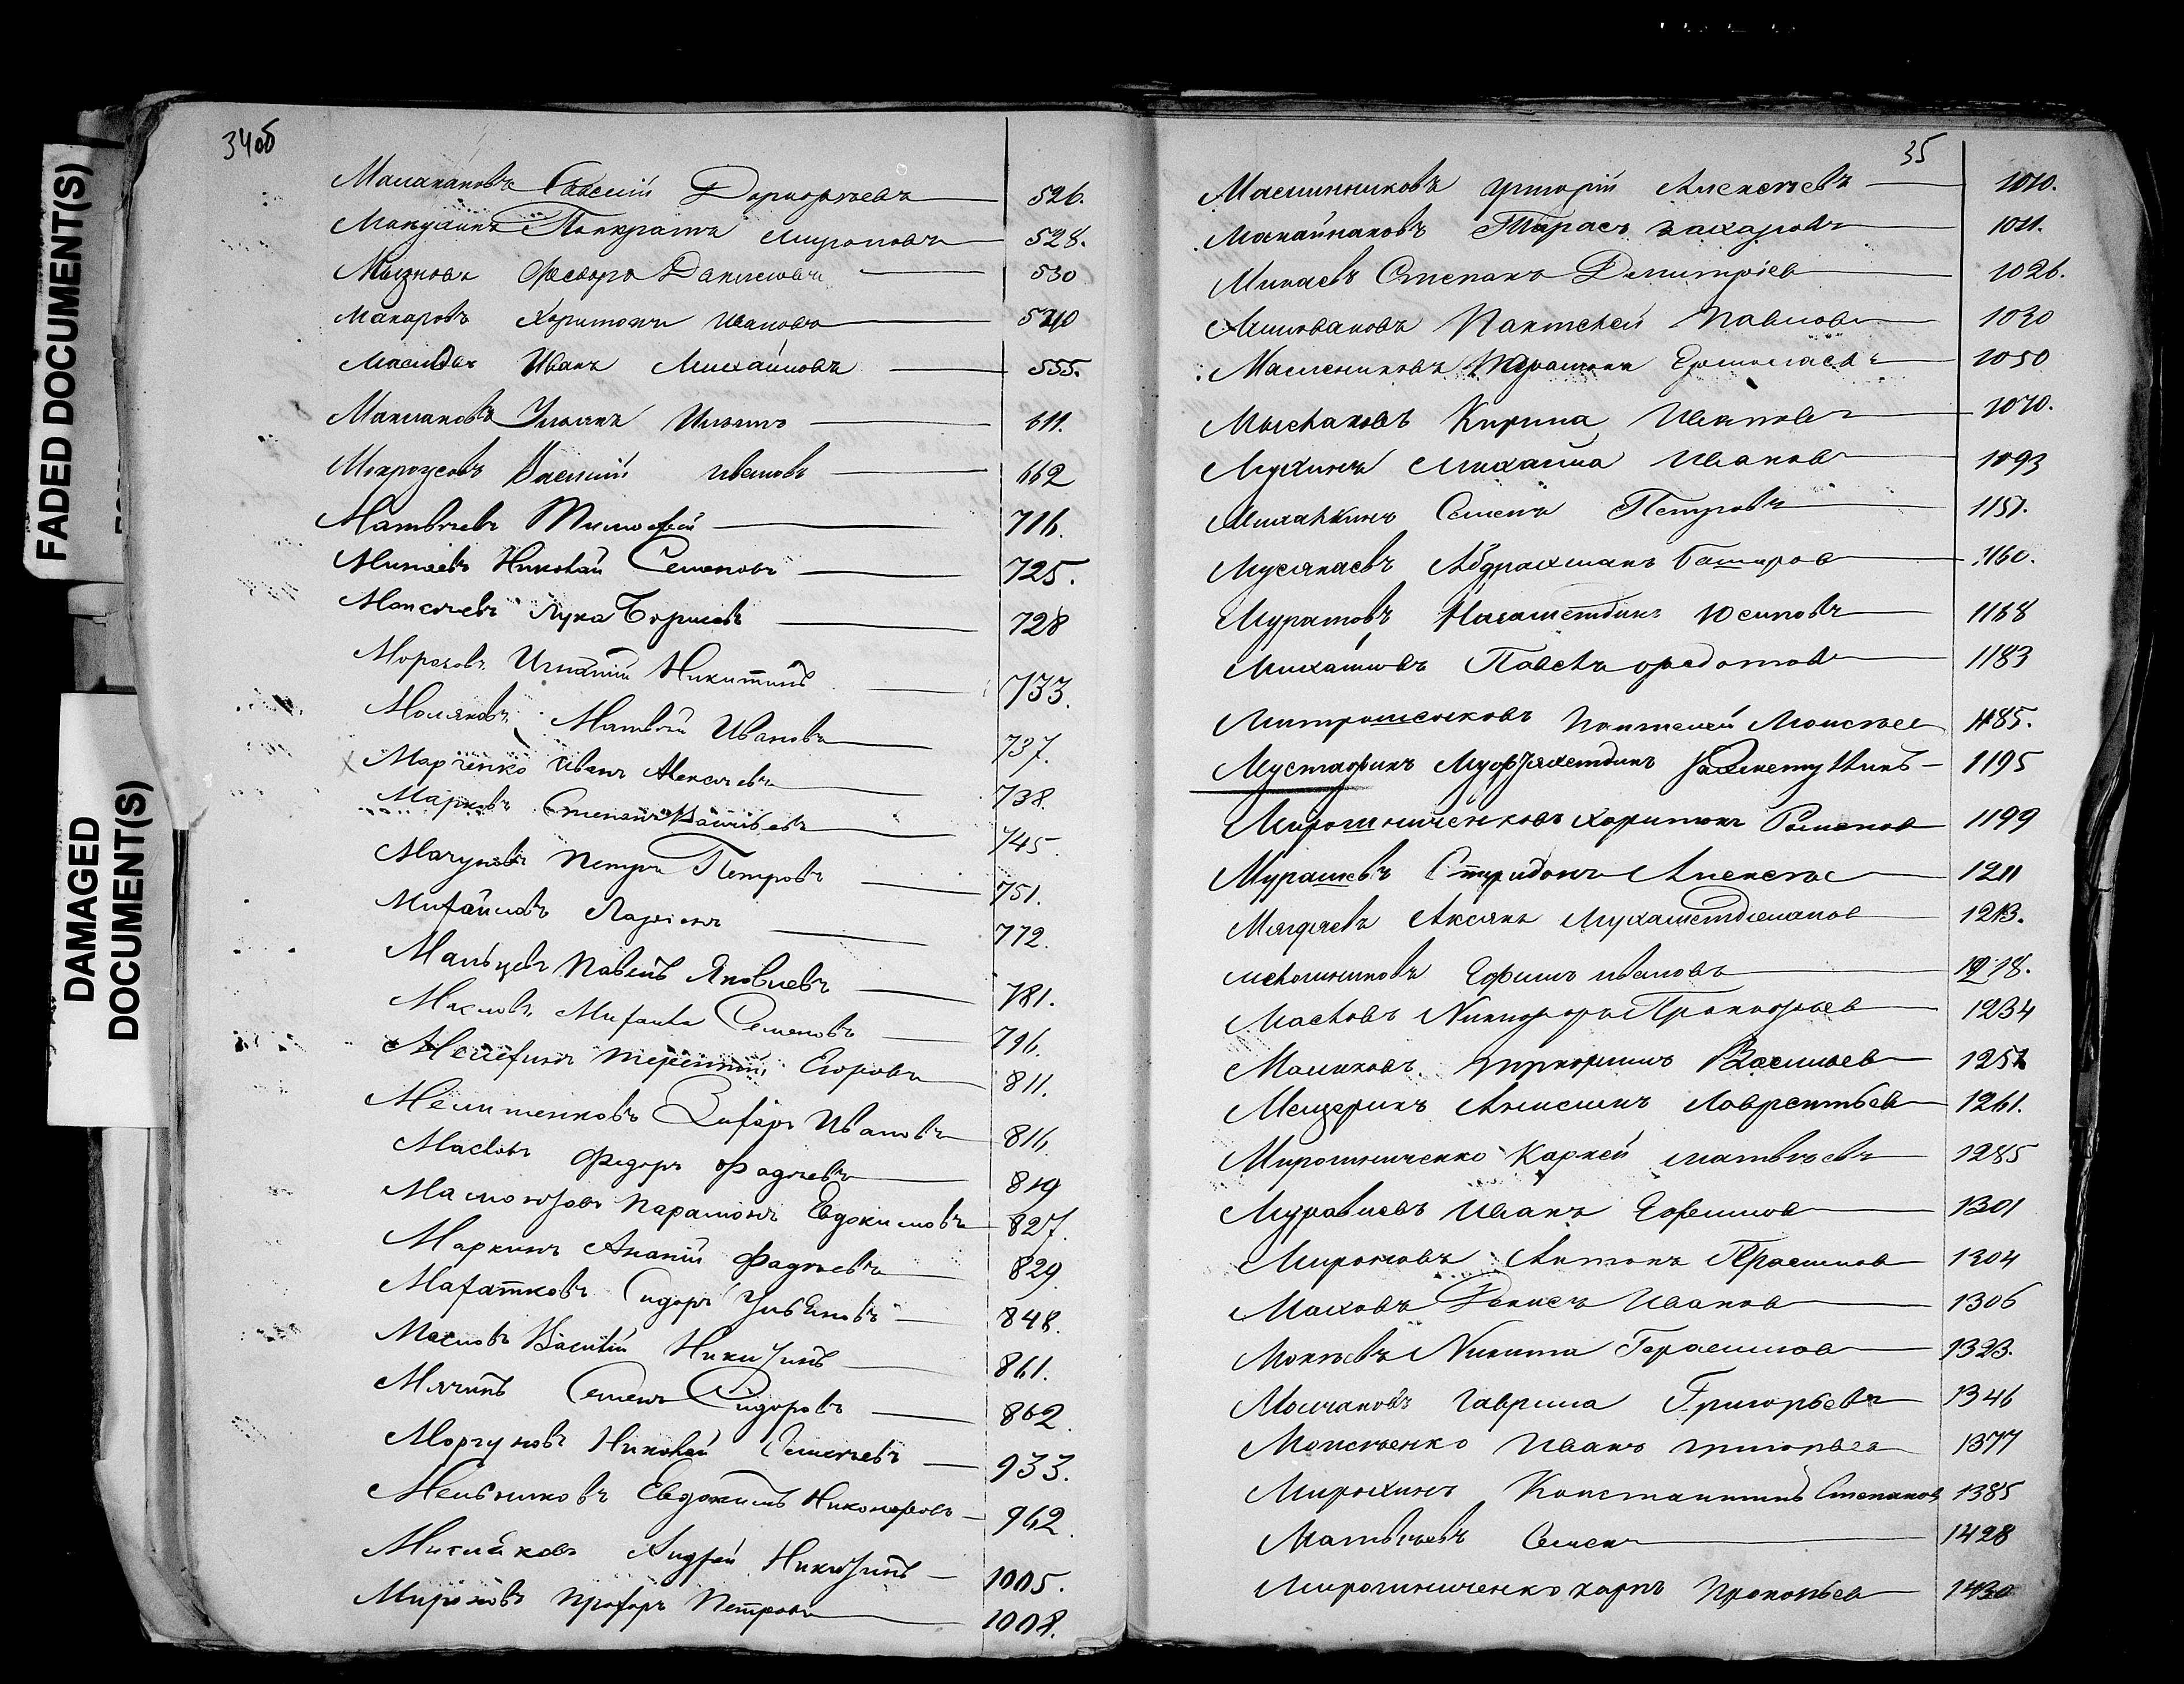 FADED DOCUMENT(S)
DAMAGED
DOCUMENT(S)
34об
Малахановъ Савелій Дорофѣевъ 526.
Панкратъ Мироновъ 528.
Мызновъ Ѳедоръ Даниловъ 530
Макаровъ Харитонъ Ивановъ 540
Масловъ Иванъ Михайловъ 555.
Ульянъ Ильинъ 611.
Мокроусовъ Василій Ивановъ 662
Матвѣевъ Тимофей 716.
Минаевъ Николай Семеновъ 725.
Моисѣевъ Лука Борисовъ 728
Морозовъ Игнатій Никитинъ 733.
Матвѣй Ивановъ 737.
Марченко Иванъ Алексѣевъ 738.
Марковъ Степанъ Васильевъ 745.
Мачуновъ Петръ Петровъ 751.
Михайловъ Ларіонъ 772.
Мальцевъ Павелъ Яковлевъ 781.
Масловъ Михаилъ Семеновъ 796.
Терентій Егоровъ 811.
Захаръ Ивановъ 816.
Масловъ Федоръ Фадѣевъ 819
Парамонъ Евдокимовъ 827.
Маркинъ Ананій Фадѣевъ 829.
Махатковъ Сидоръ Ульяновъ 848.
Масловъ Василій 861.
Мячинъ Семенъ Сидоровъ 862.
Моргуновъ Николай 933.
Мельниковъ Евдокимъ Никоноровъ 962.
Андрей 1005.
Мироновъ Прохоръ Петровъ 1008.
35
Масленниковъ Григорій Алексѣевъ 1010.
Макайкановъ Тарасъ Захаровъ 1011.
Минаевъ Степанъ Дмитріев 1026.
Миловановъ Пантелей Павлов 1030
Маслениковъ Ермолаевъ 1050
Мыслаковъ Кирила Иванов 1070.
Мухинъ Михайла Иванов 1093
Михалкинъ Семенъ Петровъ 1157.
Мусякаевъ Абдрахманъ Баширов 1160.
Муратовъ Юсуповъ 1168
Михайловъ Павелъ Ѳедотов 1183
Митрошенковъ Пантелей Моисѣев 1185.
Мустафинъ 1195
Мирошниченковъ Харитонъ Романов 1199
Мурашевъ Спиридонъ Алексѣе 1211
Мягдѣевъ Аксянъ 1213.
Мельниковъ Ефимъ Ивановъ 1218.
Масловъ Никифоръ Прокофьев 1234
Малаховъ Григорій Васильев 1251
Мещеринъ Анисимъ Лаврентьев 1261.
Мирошниченко Карней Матвѣевъ 1285
Муравлевъ Иванъ Ефимов 1301
Мироновъ Антонъ Герасимов 1304
Маховъ Денисъ Иванов 1306
Мокѣевъ Никита Герасимов 1323.
Молчановъ Гаврила Григорьевъ 1346
Моисѣенко Иванъ Григорьев 1377
Мирохинъ Константинъ Степанов 1385
Матвѣевъ Семенъ 1428
Мирошниченко Карпъ Прокопьев 1430